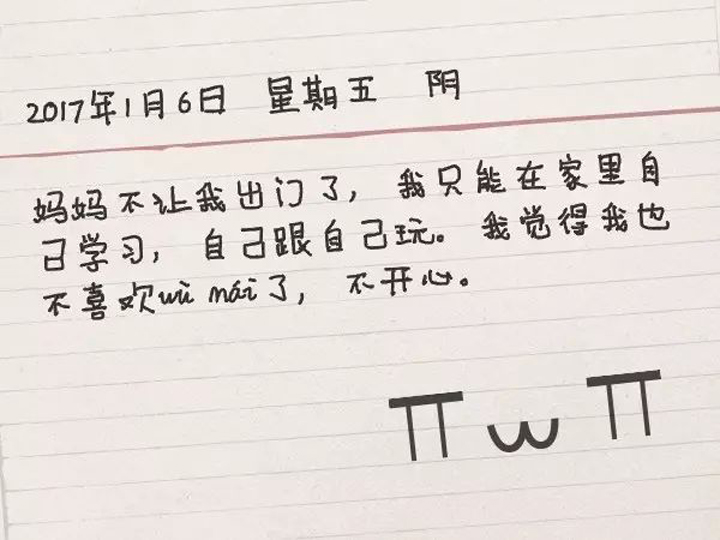 2017年1月6日 星期五 阴
妈妈不让我出门了，我只能在家里自
己学习，自己跟自己玩。我觉得我也
不喜欢wù mái了，不开心。
ㅠωㅠ